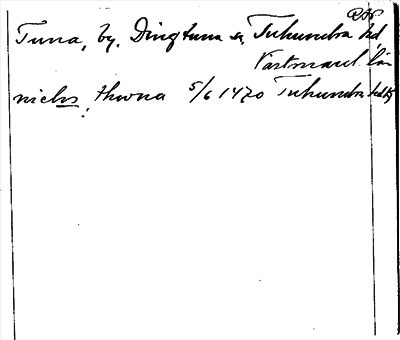 Tuna, by, Dingtuna sn, Tuhundra hd,
Västmanl. län
nichis thwna 5/6 1470 Tuhundra hd